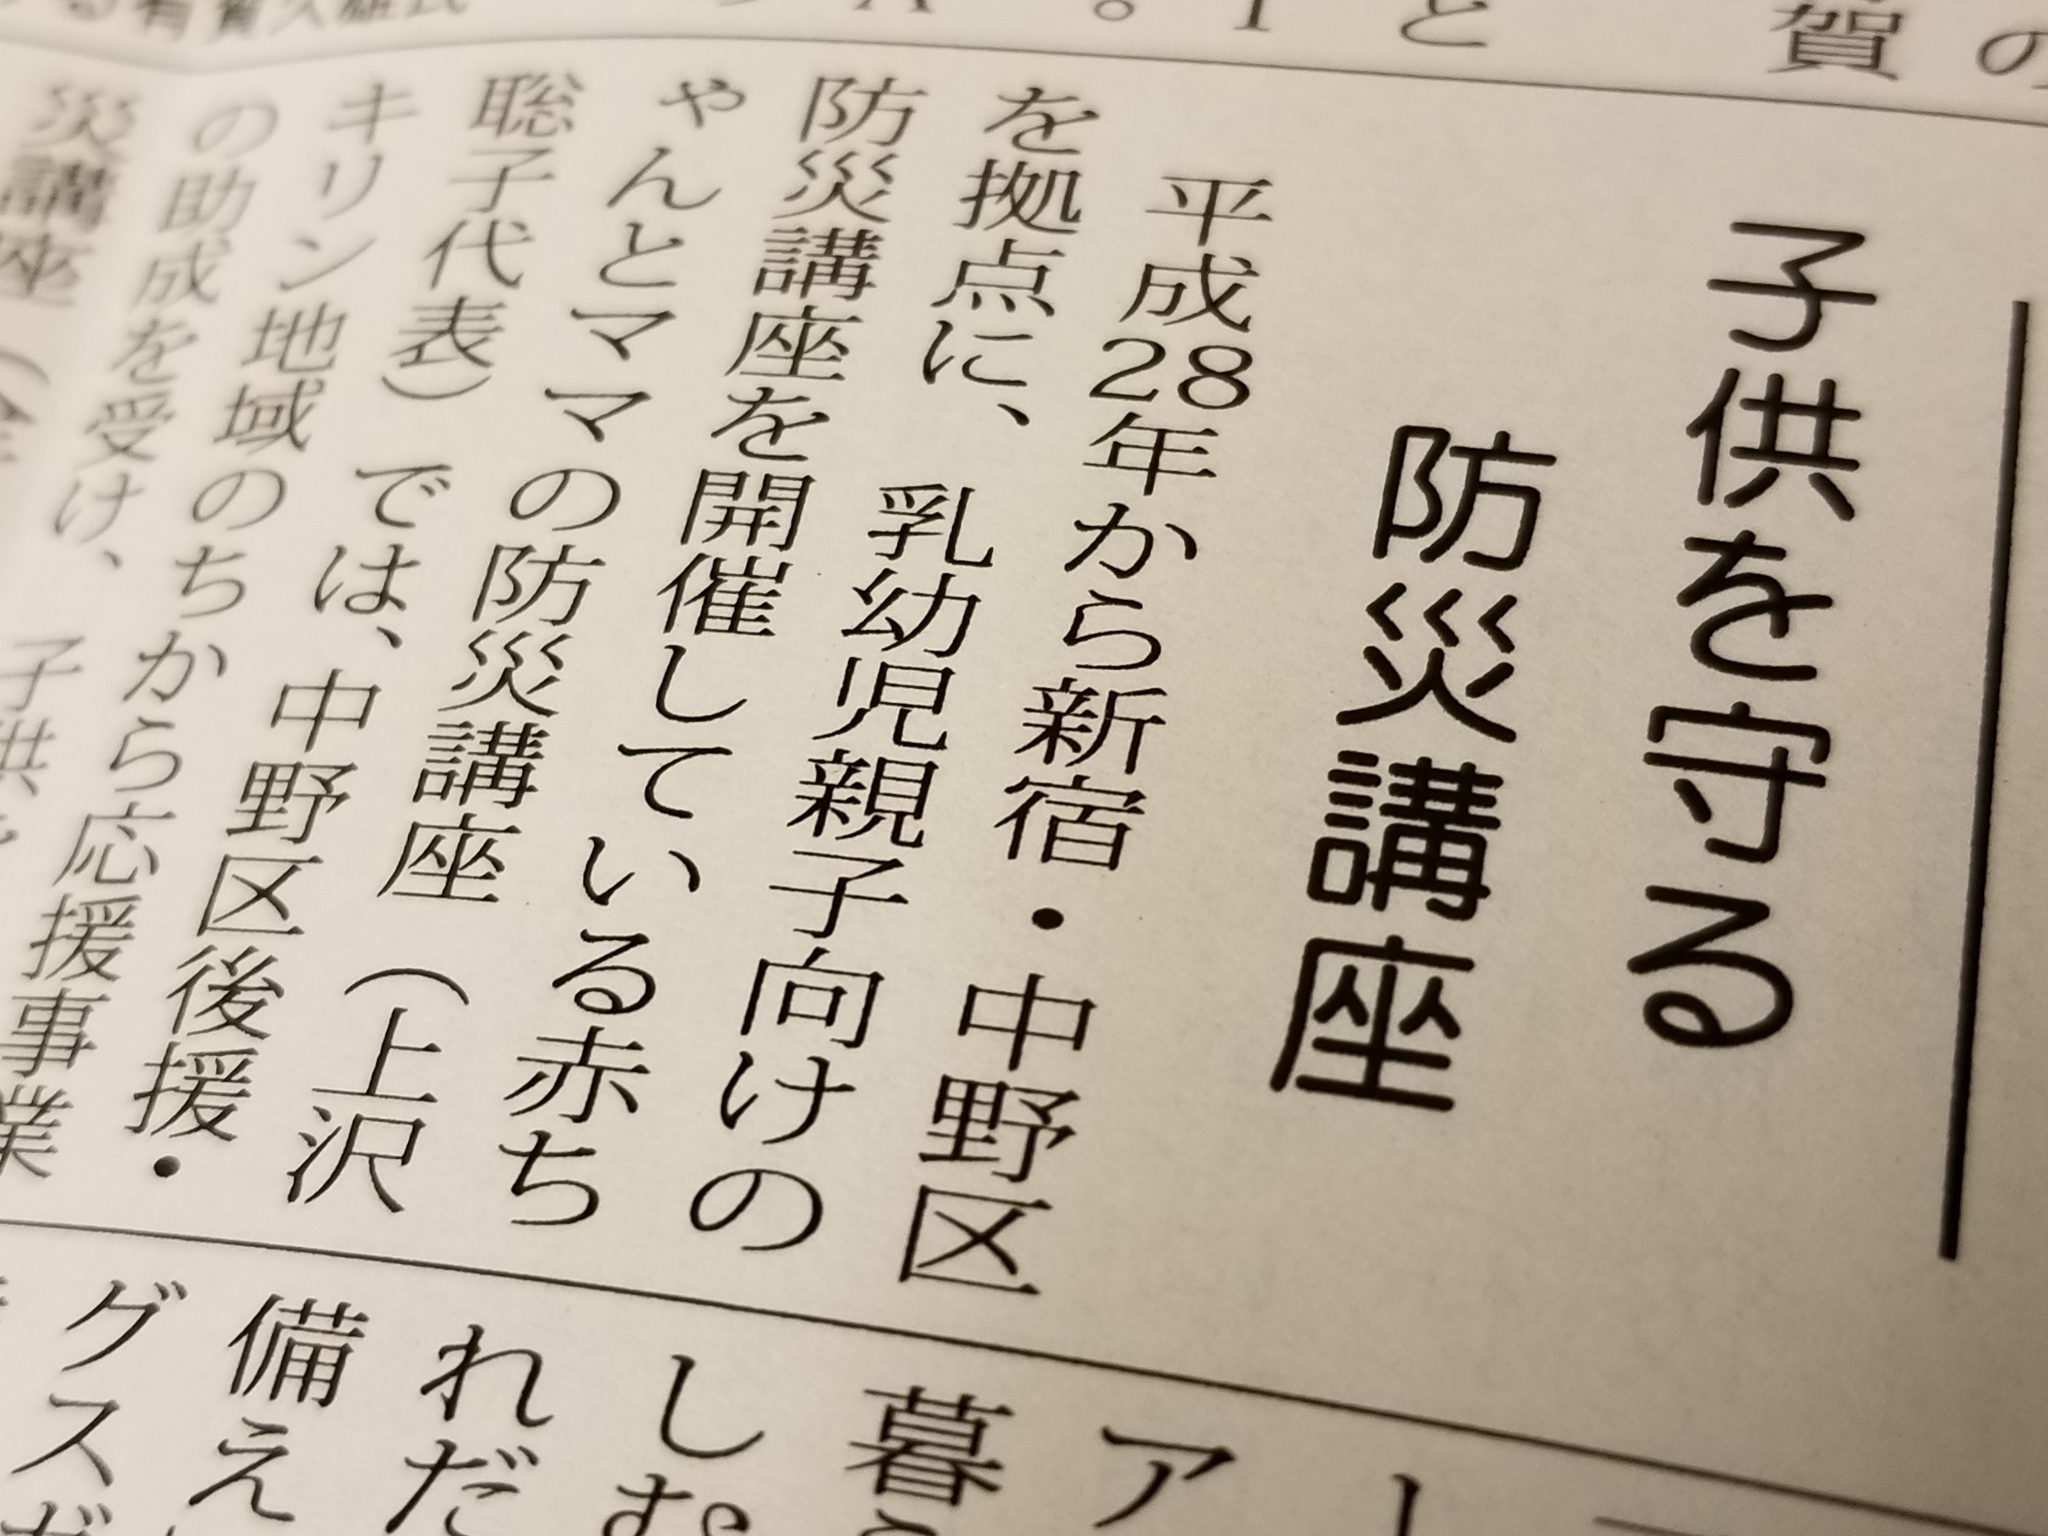 の
賀
と
子供を守る
防災講座
平成28年から新宿・中野区
を拠点に、乳幼児親子向けの
防災講座を開催している赤ち
ゃんとママの防災講座(上沢
聡子代表)では、中野区後援・
キリン地域のちから応援事業
の助成を受け、子供を
災講座(
ー
ア
暮
しむ
れだ
備え
グス